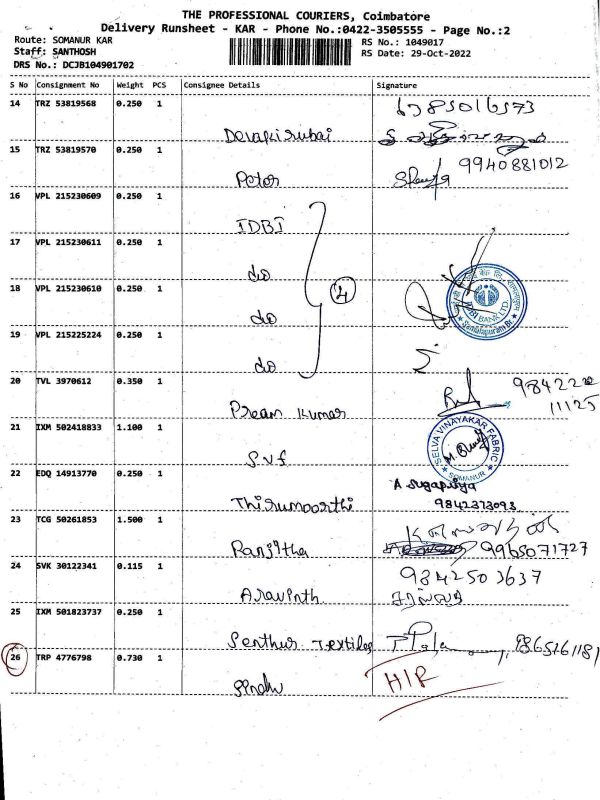 THE PROFESSIONAL COURIERS, Coimbatore
Delivery Runsheet - KAR - Phone No.:0422-3505555 - Page No.:2
Route: SOMANUR KAR
RS No.: 1049017
Staff: SANTHOSH
RS Date: 29-Oct-2022
DRS No.: DCJB104901702
S No Consignment No Weight PCS Consignee Details Signature
14 TRZ 53819568 0.250 1
Devakirubai
15 TRZ 53819570 0.250 1
9940881012
Peter
16 VPL 215230609 0.250 1
IDBI
17 VPL 215230611 0.250 1
do
18 VPL 215230610 0.250 1
4
IDBI BANK LTD.
do
19 VPL 215225224 0.250 1
do
20 TVL 3970612 0.350 1
984222
11125
Prem Kumar
21 IXM 502418833 1.100 1
SELVA VINAYAKAR FABRIC
SOMANUR
SVf
22 EDQ 14913770 0.250 1
A sugapriya
Thirumoorthi 9842373093
23 TCG 50261853 1.500 1
Ranjitha 9965071727
24 SVK 30122341 0.115 1
9842503637
Aravinth
25 IXM 501823737 0.250 1
Senthur Textiles
26 TRP 4776798 0.730 1
H/R
Sindhu